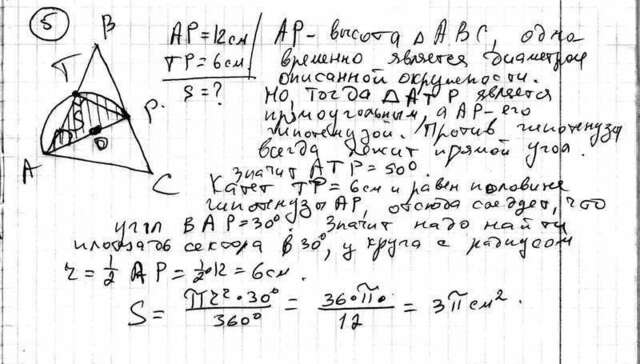 5
B
T
P
S
O
A
C
AP=12см
TP=6см
S=?
AP - высота △ABC, одно
временно является диаметром
описанной окружности.
Но, тогда △ATP является
прямоугольным, а AP - его
гипотенузой. Против гипотенузы
всегда лежит прямой угол.
Значит ATP=90°.
Катет TP=6см и равен половине
гипотенузы AP, отсюда следует, что
угол BAP=30°. Значит надо найти
площадь сектора в 30°, у круга с радиусом
r = 1/2 AP = 1/2·12 = 6см.
S = πr²·30°/360° = 36·π·/12 = 3π см².